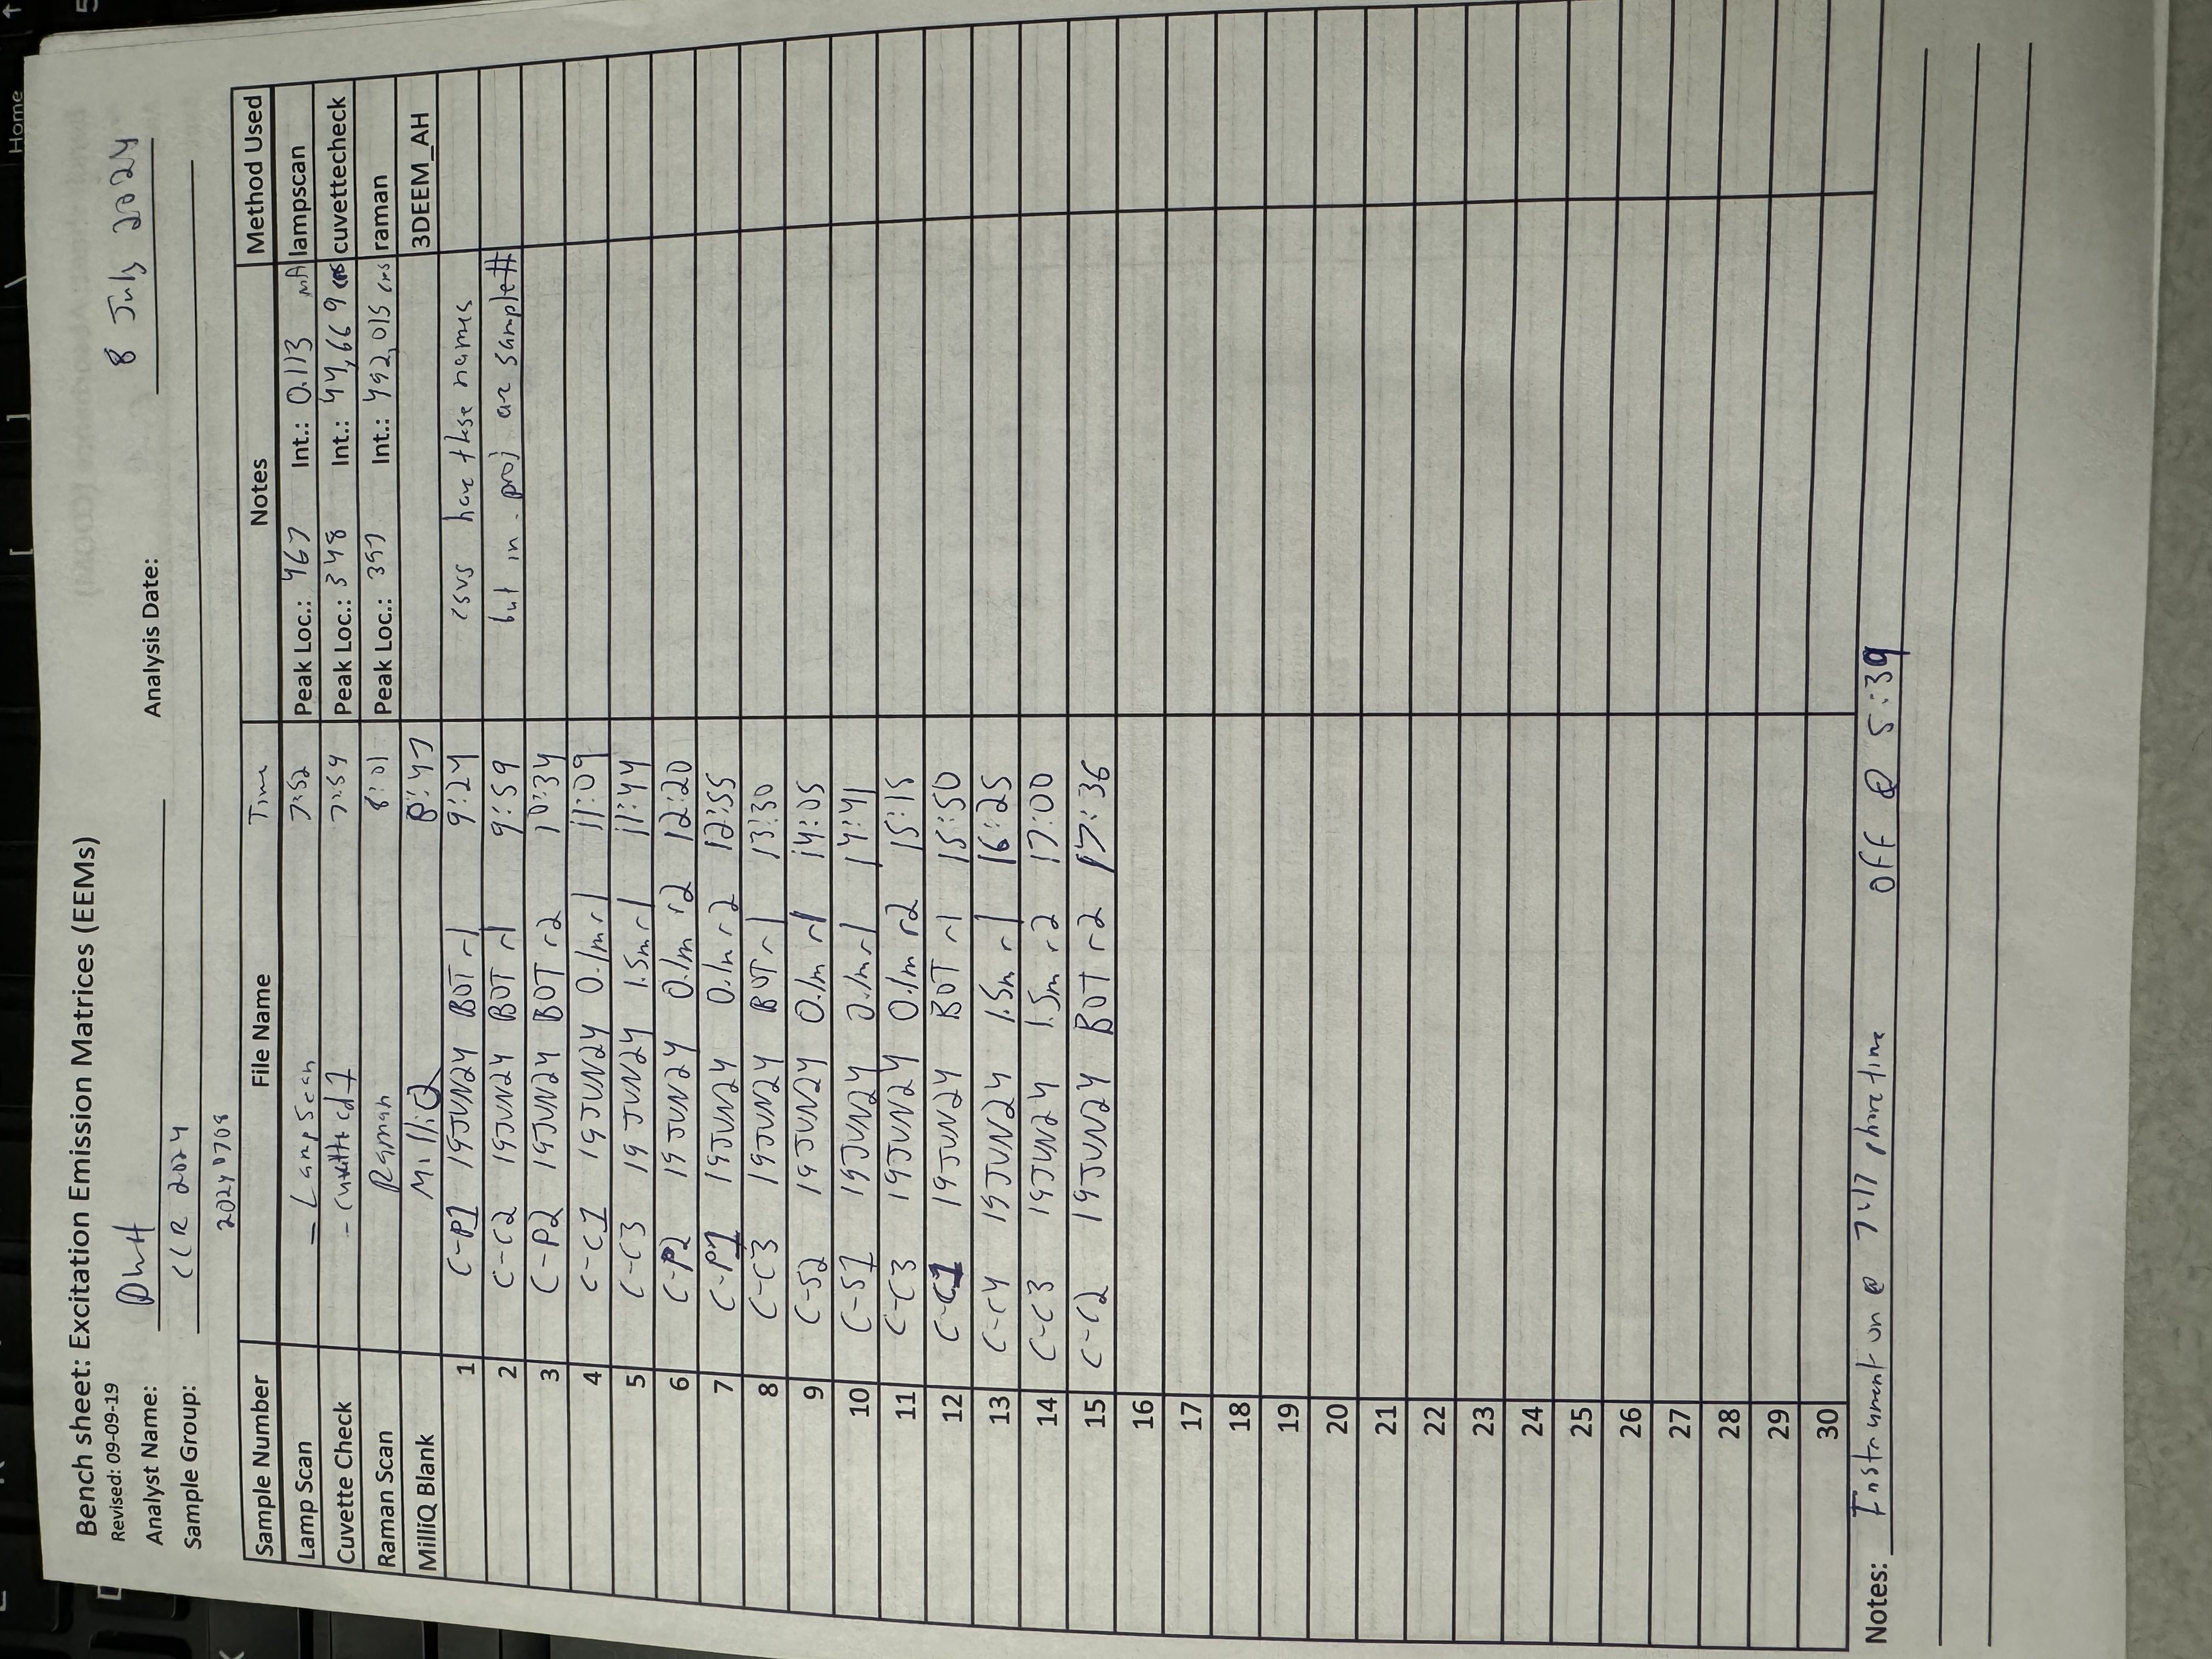 Home
Bench sheet: Excitation Emission Matrices (EEMs)
Revised: 09-09-19
Analyst Name: DWH Analysis Date: 8 July 2024
Sample Group: CCR 2024
20240708
Sample Number File Name Time Notes Method Used
Lamp Scan _LampScan 7:52 Peak Loc.: 467 Int.: 0.113 mA lampscan
Cuvette Check 7:54 Peak Loc.: 348 Int.: 44,669 cps cuvettecheck
Raman Scan Raman 8:01 Peak Loc.: 397 Int.: 492,015 cps raman
MilliQ Blank MilliQ 8:47 3DEEM_AH
1 C-P1 19JUN24 BOT r1 9:24 csvs have these names
2 C-C2 19JUN24 BOT r1 9:59 but in .proj are sample#
3 C-P2 19JUN24 BOT r2 10:34
4 C-C1 19JUN24 0.1m r1 11:09
5 C-C3 19JUN24 1.5m r1 11:44
6 C-P2 19JUN24 0.1m r2 12:20
7 C-P1 19JUN24 0.1m r2 12:55
8 C-C3 19JUN24 BOT r1 13:30
9 C-S2 19JUN24 0.1m r1 14:05
10 C-S1 19JUN24 0.1m r1 14:41
11 C-C3 19JUN24 0.1m r2 15:15
12 C-C1 19JUN24 BOT r1 15:50
13 C-C4 19JUN24 1.5m r1 16:25
14 C-C3 19JUN24 1.5m r2 17:00
15 C-C2 19JUN24 BOT r2 17:36
16
17
18
19
20
21
22
23
24
25
26
27
28
29
30
Notes: Instrument on @ 7:17 phone time OFF @ 5:39